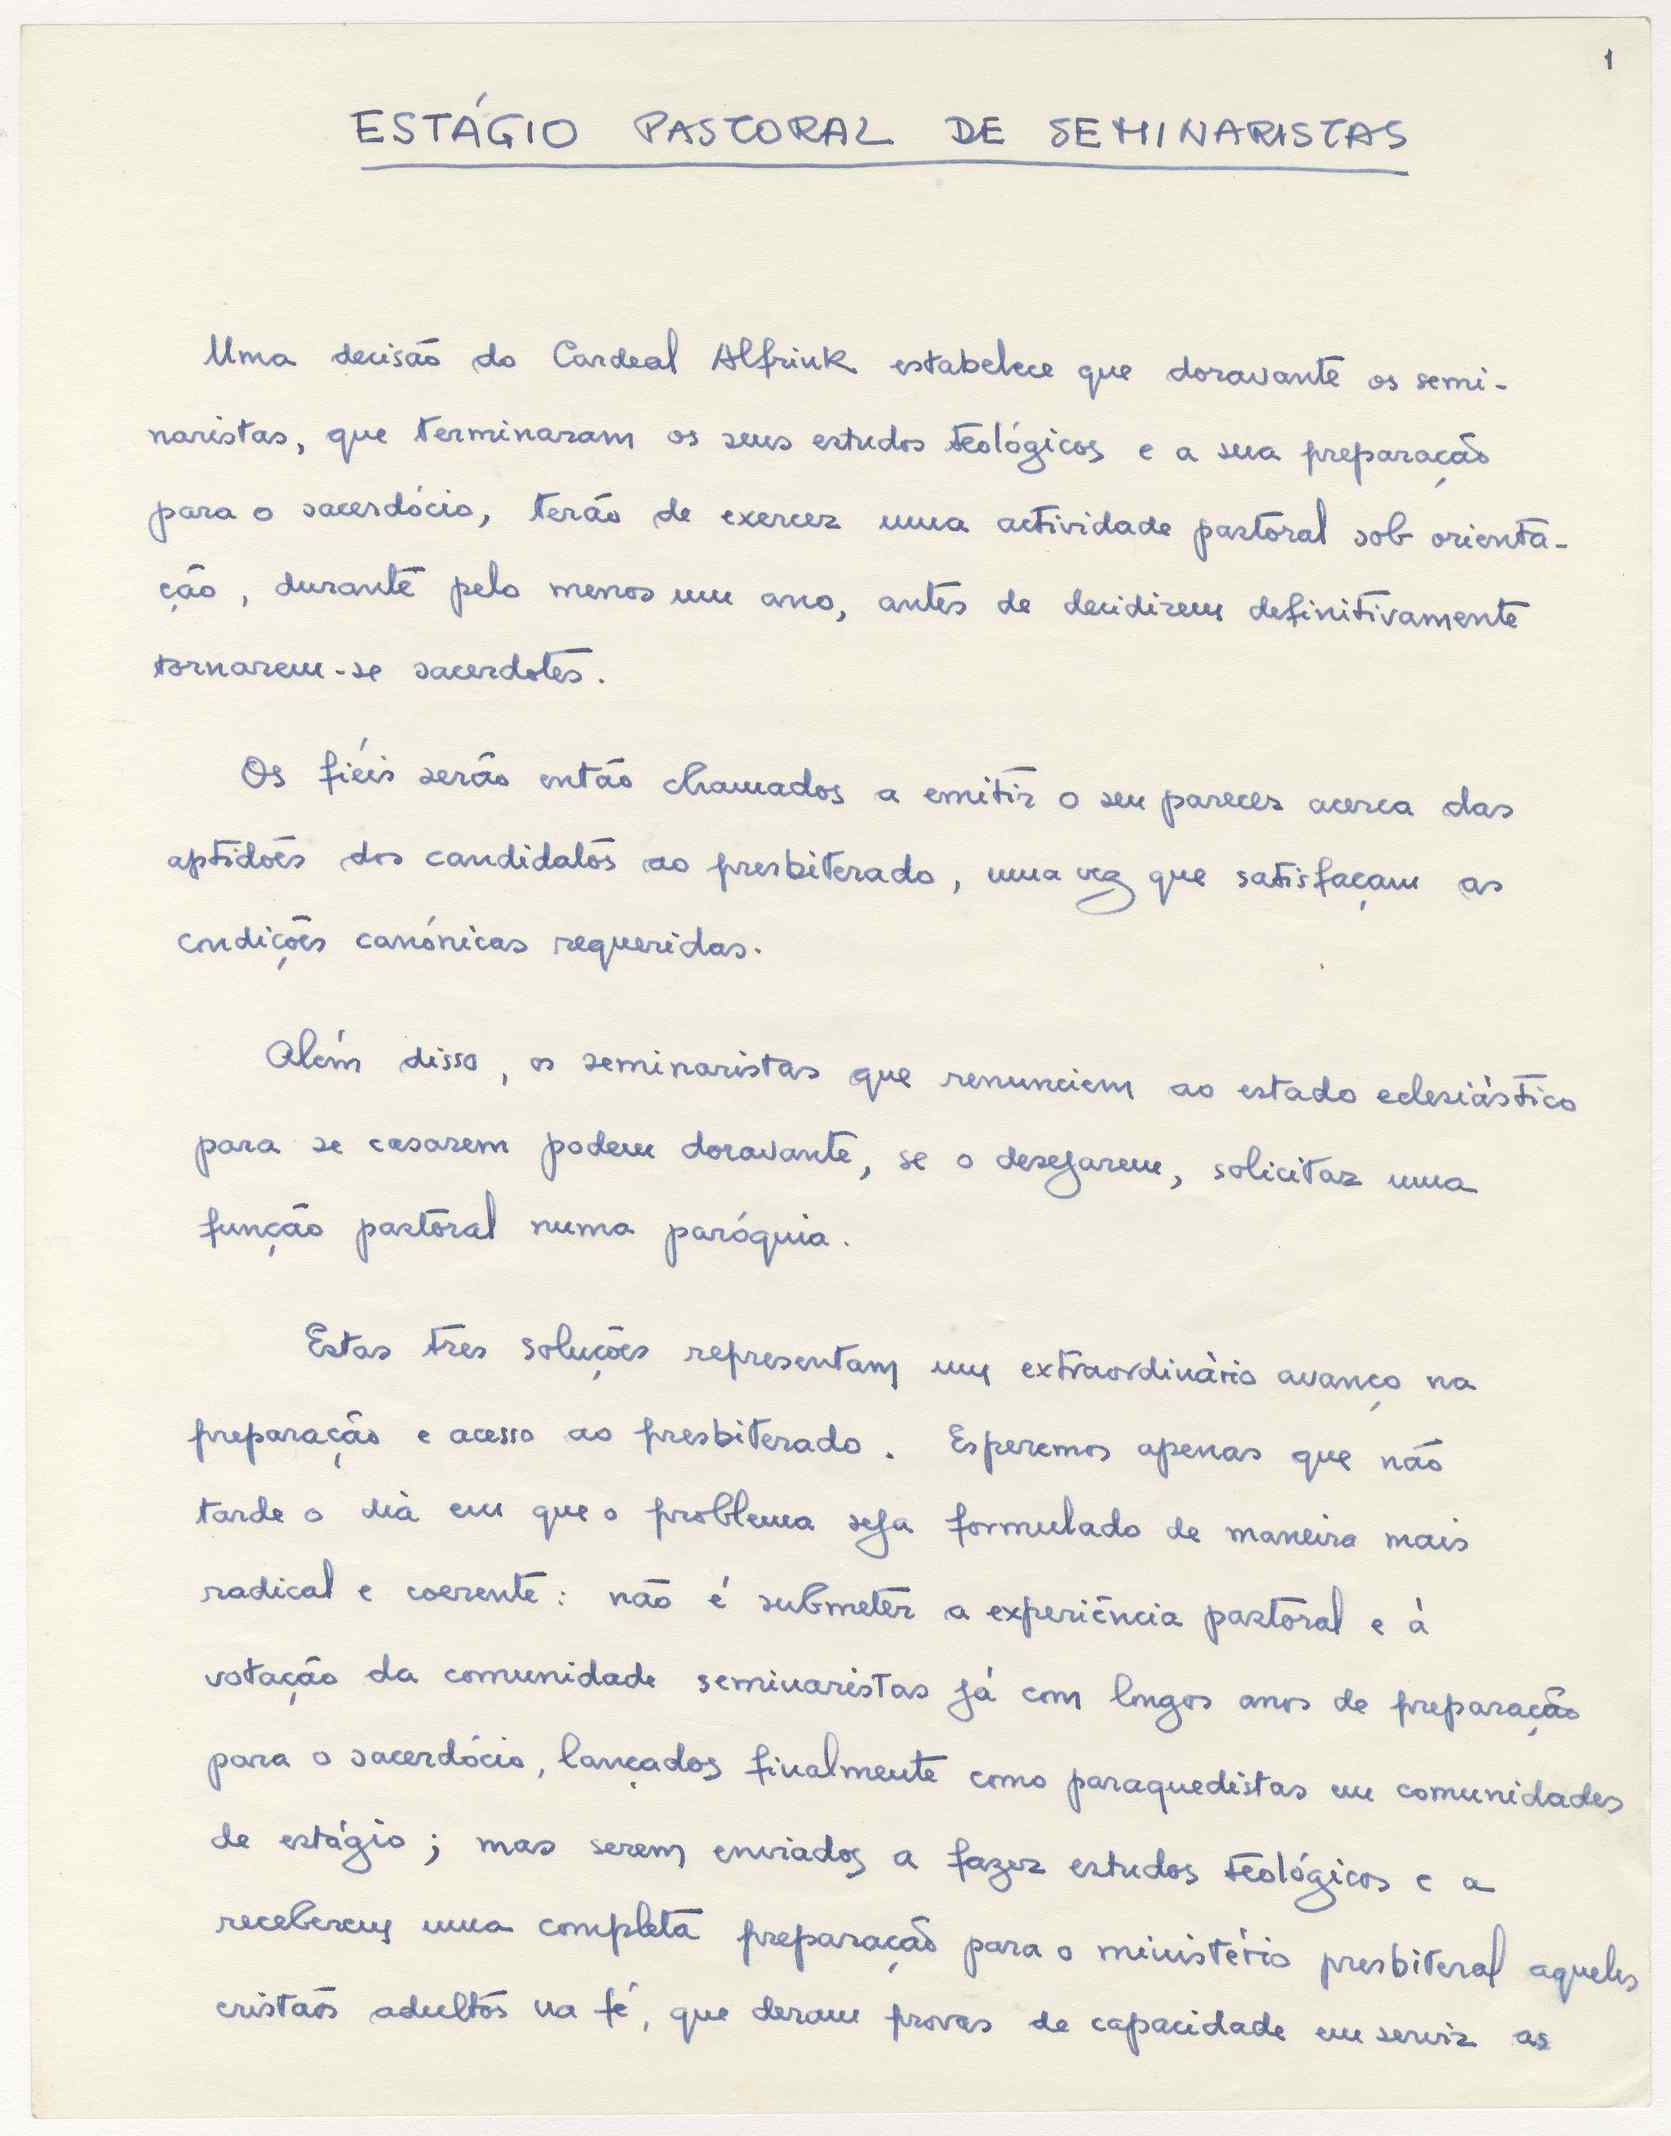 1
ESTÁGIO PASTORAL DE SEMINARISTAS
Uma decisão do Cardeal Alfrink estabelece que doravante os semi-
naristas, que terminaram os seus estudos teológicos e a sua preparação
para o sacerdócio, terão de exercer uma actividade pastoral sob orienta-
ção, durante pelo menos um ano, antes de decidirem definitivamente
tornarem-se sacerdotes.
Os fiéis serão então chamados a emitir o seu parecer acerca das
aptidões dos candidatos ao presbiterado, uma vez que satisfaçam as
condições canónicas requeridas.
Além disso, os seminaristas que renunciem ao estado eclesiástico
para se casarem podem doravante, se o desejarem, solicitar uma
função pastoral numa paróquia.
Estas três soluções representam um extraordinário avanço na
preparação e acesso ao presbiterado. Esperemos apenas que não
tarde o dia em que o problema seja formulado de maneira mais
radical e coerente: não é submeter a experiência pastoral e à
votação da comunidade seminaristas já com longos anos de preparação
para o sacerdócio, lançados finalmente como paraquedistas em comunidades
de estágio; mas serem enviados a fazer estudos teológicos e a
receberem uma completa preparação para o ministério presbiteral aqueles
cristãos adultos na fé, que deram provas de capacidade em servir as